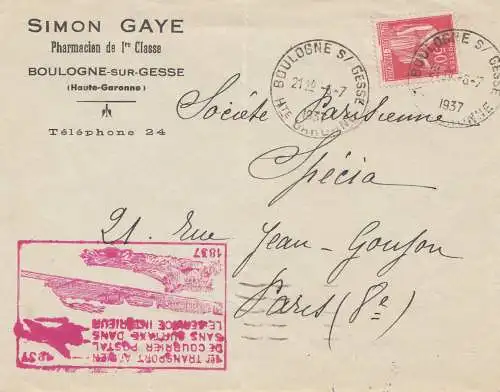 SIMON GAYE
Pharmacien de 1re Classe
BOULOGNE-SUR-GESSE
(Haute-Garonne)
Téléphone 24
BOULOGNE S/ GESSE
21 8-7
1937
Hte GARONNE
50c
BOULOGNE S/ GESSE
8-7
1937
Société Parisienne
Spécia
21. rue Jean-Goujon
Paris (8e)
1er TRANSPORT AERIEN
DE COURRIER POSTAL
SANS SURTAXE DANS
LE SERVICE INTÉRIEUR
1937
1837